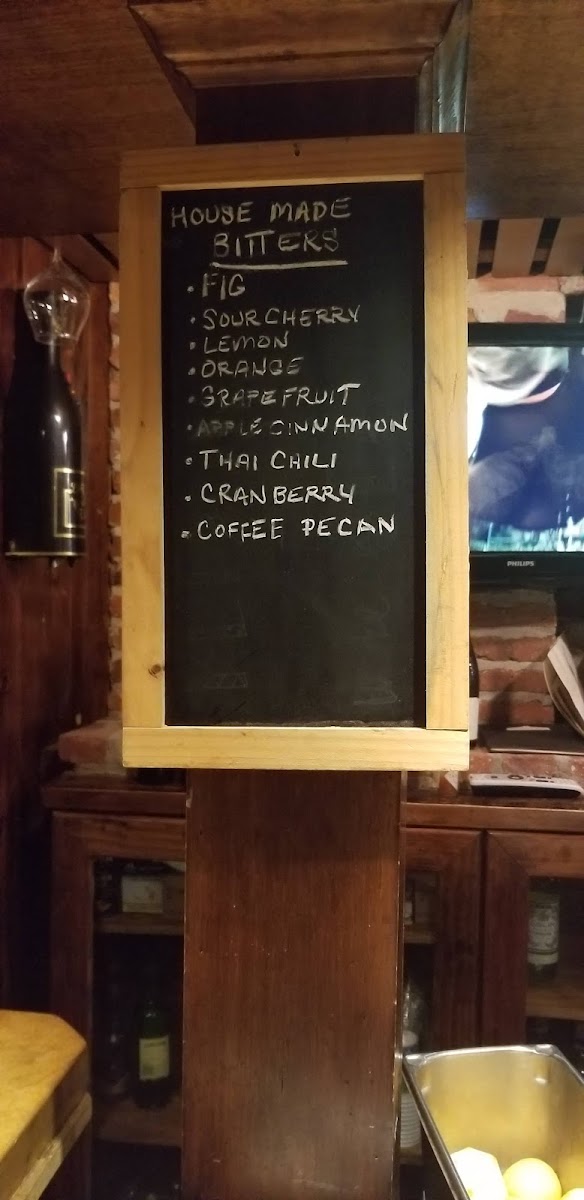 HOUSE MADE
BITTERS
• FIG
• SOUR CHERRY
• LEMON
• ORANGE
• GRAPEFRUIT
• APPLE CINNAMON
• THAI CHILI
• CRANBERRY
• COFFEE PECAN
PHILIPS